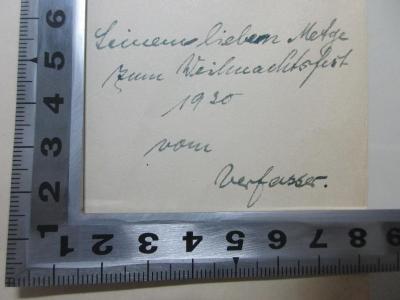 Seinem lieben Metge
zum Weihnachtsfest
1930
vom
Verfasser.
6
5
4
3
2
1
2 1 1 2 3 4 5 6 7 8 9